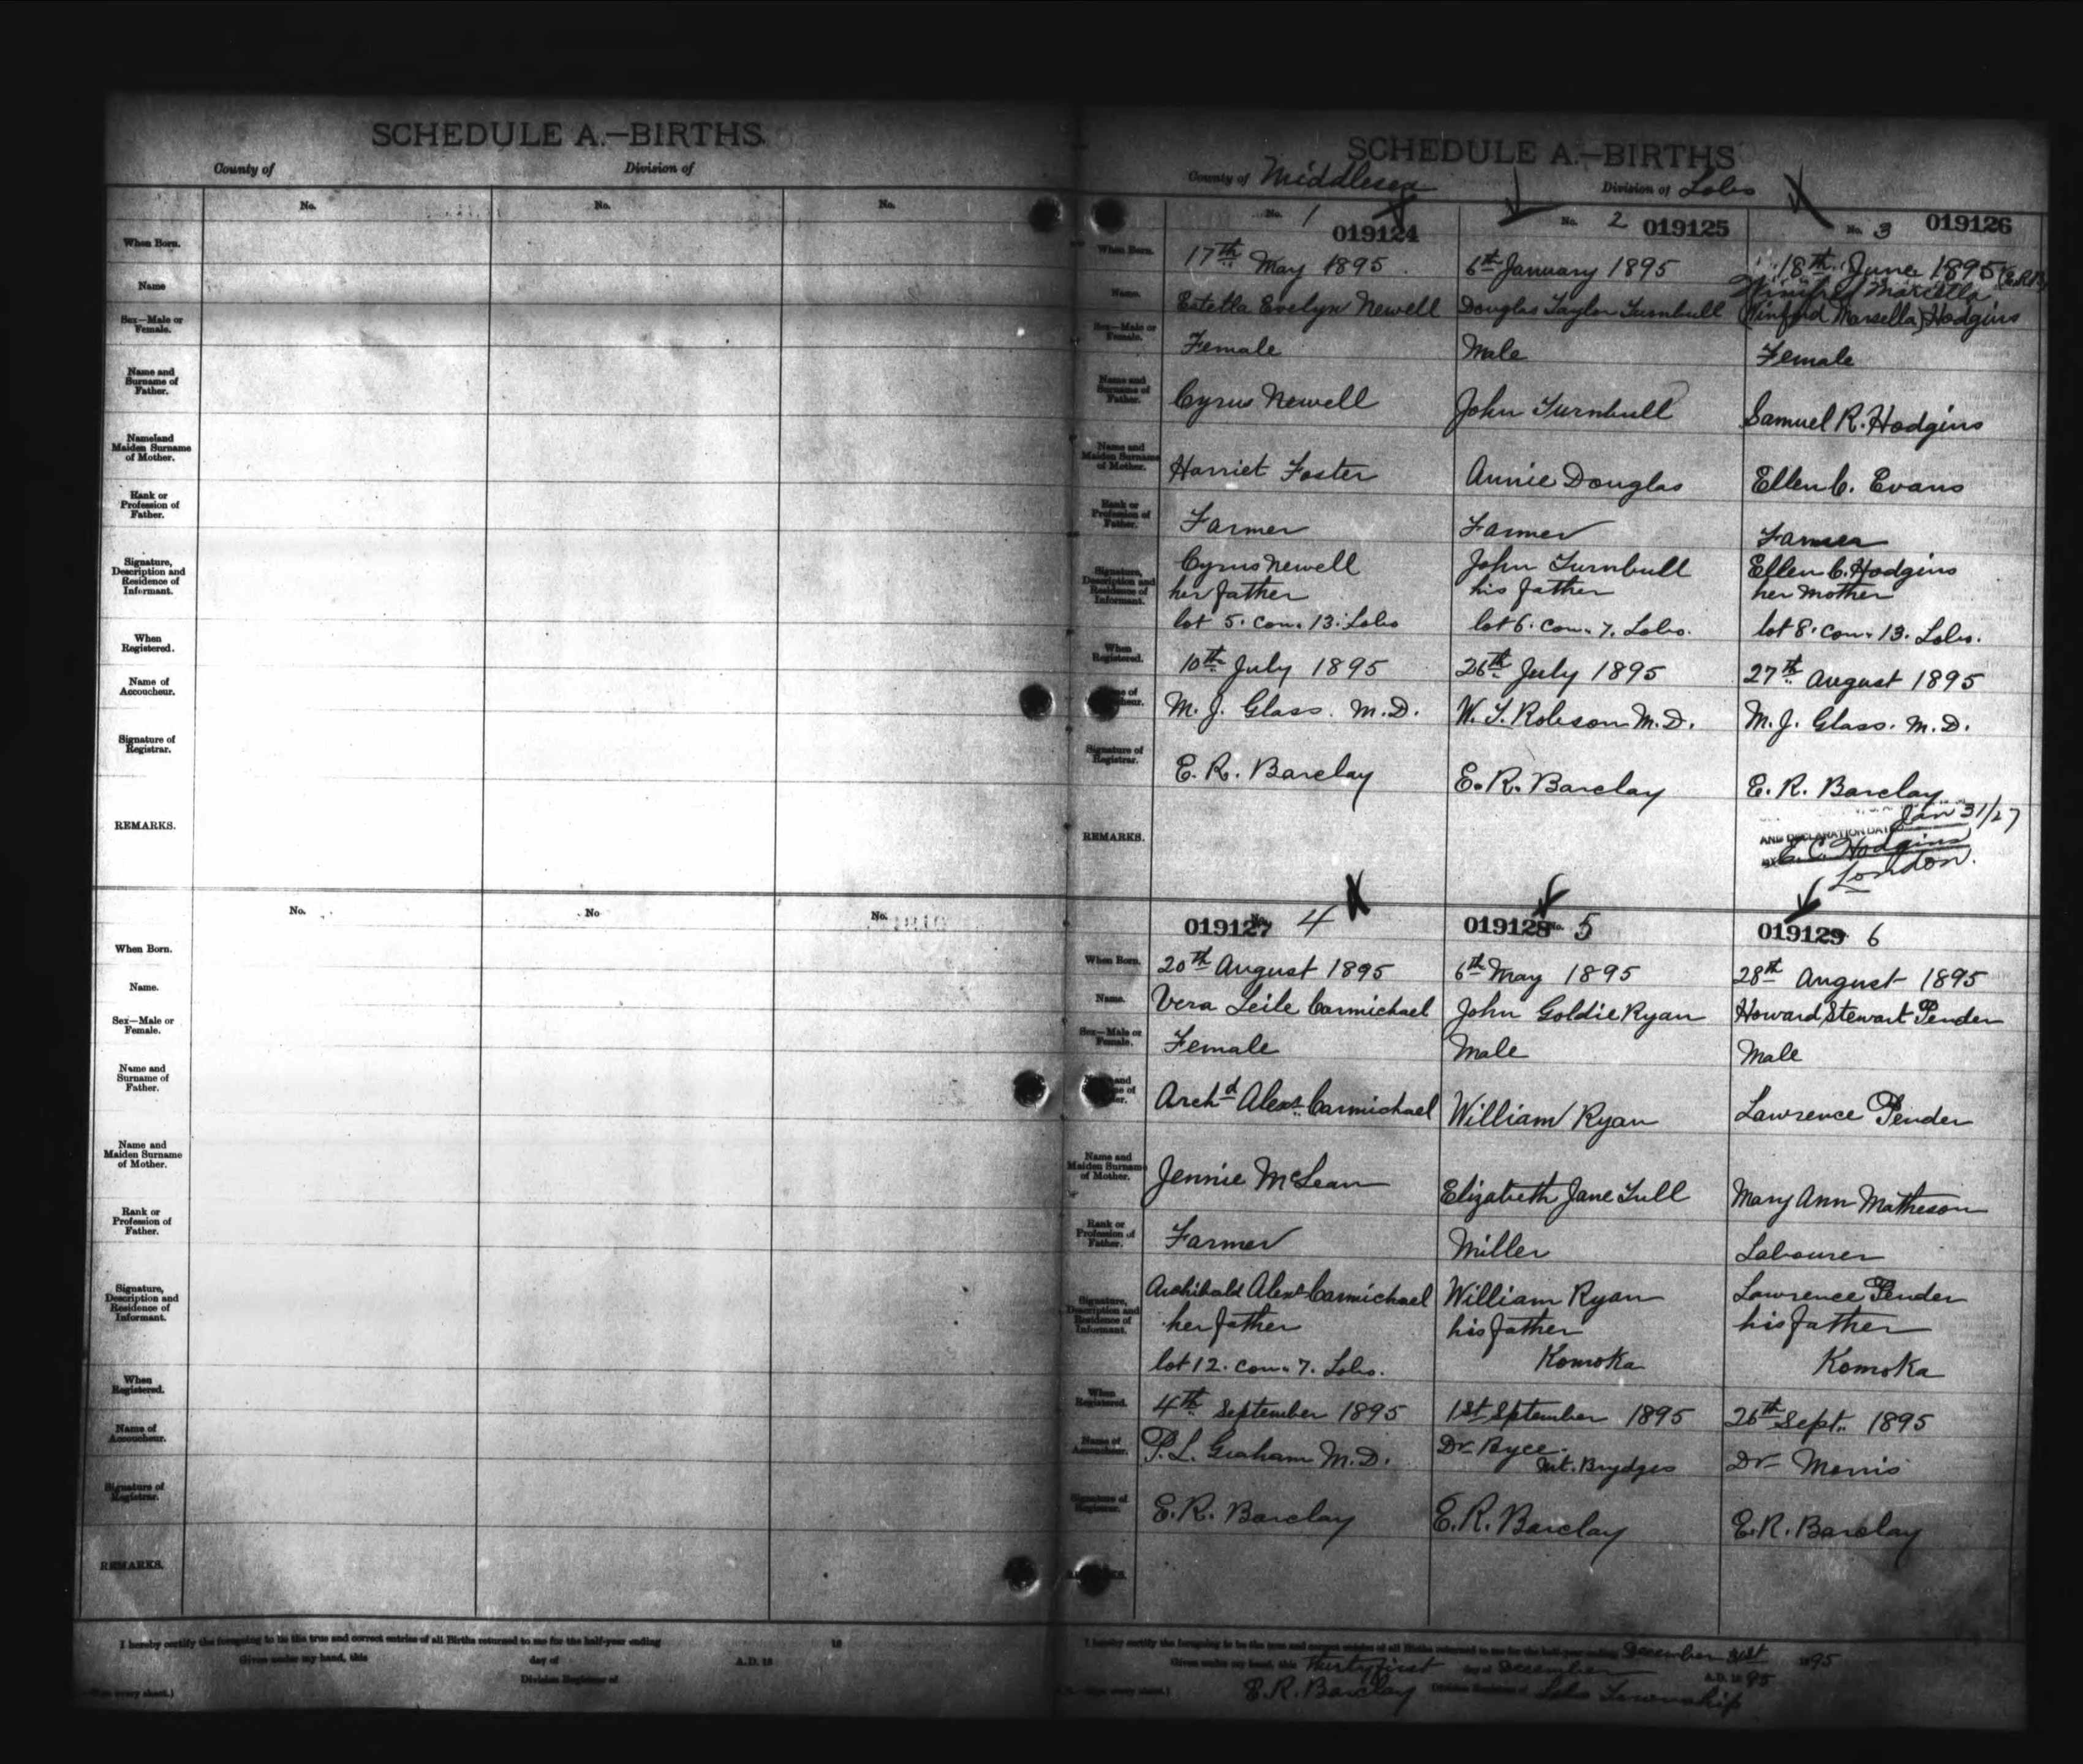 SCHEDULE A.—BIRTHS.
County of
Division of
No.
No.
No.
When Born.
Name
Sex—Male or Female.
Name and Surname of Father.
Name and Maiden Surname of Mother.
Rank or Profession of Father.
Signature, Description and Residence of Informant.
When Registered.
Name of Accoucheur.
Signature of Registrar.
REMARKS.
No.
No
No.
When Born.
Name.
Sex—Male or Female.
Name and Surname of Father.
Name and Maiden Surname of Mother.
Rank or Profession of Father.
Signature, Description and Residence of Informant.
When Registered.
Name of Accoucheur.
Signature of Registrar.
REMARKS.
I hereby certify the foregoing to be the true and correct entries of all Births returned to me for the half-year ending 18
Given under my hand, this day of A.D. 18
Division Registrar of
SCHEDULE A.—BIRTHS
County of Middlesex Division of Lobo
No. 1 019124 No. 2 019125 No. 3 019126
When Born. 17th May 1895 6th January 1895 18th June 1895 (E.R.B.)
Winifred Marcella
Name. Estella Evelyn Newell Douglas Taylor Turnbull (Winford Marsella) Hodgins
Sex—Male or Female. Female Male Female
Name and Surname of Father. Cyrus Newell John Turnbull Samuel R. Hodgins
Name and Maiden Surname of Mother. Harriet Foster Annie Douglas Ellen C. Evans
Rank or Profession of Father. Farmer Farmer Farmer
Signature, Description and Residence of Informant. Cyrus Newell John Turnbull Ellen C. Hodgins
her father his father her mother
lot 5. con. 13. Lobo lot 6. con. 7. Lobo. lot 8. con. 13. Lobo.
When Registered. 10th July 1895 26th July 1895 27th August 1895
Name of Accoucheur. M. J. Glass. M.D. W. T. Robeson M.D. M. J. Glass. M.D.
Signature of Registrar. E. R. Barclay E. R. Barclay E. R. Barclay
REMARKS.
Jan 31/27
AND DECLARATION DATED
BY E. C. Hodgins
London.
019127 No. 4 019128 No. 5 019129 6
When Born. 20th August 1895 6th May 1895 28th August 1895
Name. Vera Leile Carmichael John Goldie Ryan Howard Stewart Pender
Sex—Male or Female. Female Male Male
Name and Surname of Father. Archd Alexr Carmichael William Ryan Lawrence Pender
Name and Maiden Surname of Mother. Jennie McLean Elizabeth Jane Tull Mary Ann Matheson
Rank or Profession of Father. Farmer Miller Labourer
Signature, Description and Residence of Informant. Archibald Alexr Carmichael William Ryan Lawrence Pender
her father his father his father
lot 12. con. 7. Lobo. Komoka Komoka
When Registered. 4th September 1895 1st September 1895 26th Sept. 1895
Name of Accoucheur. P. L. Graham M.D. Dr Byce. Mt. Brydges Dr Morris
Signature of Registrar. E. R. Barclay E. R. Barclay E. R. Barclay
I hereby certify the foregoing to be the true and correct entries of all Births returned to me for the half-year ending December 31st 1895
Given under my hand, this Thirty first day of December A.D. 1895
E. R. Barclay Division Registrar of Lobo Township